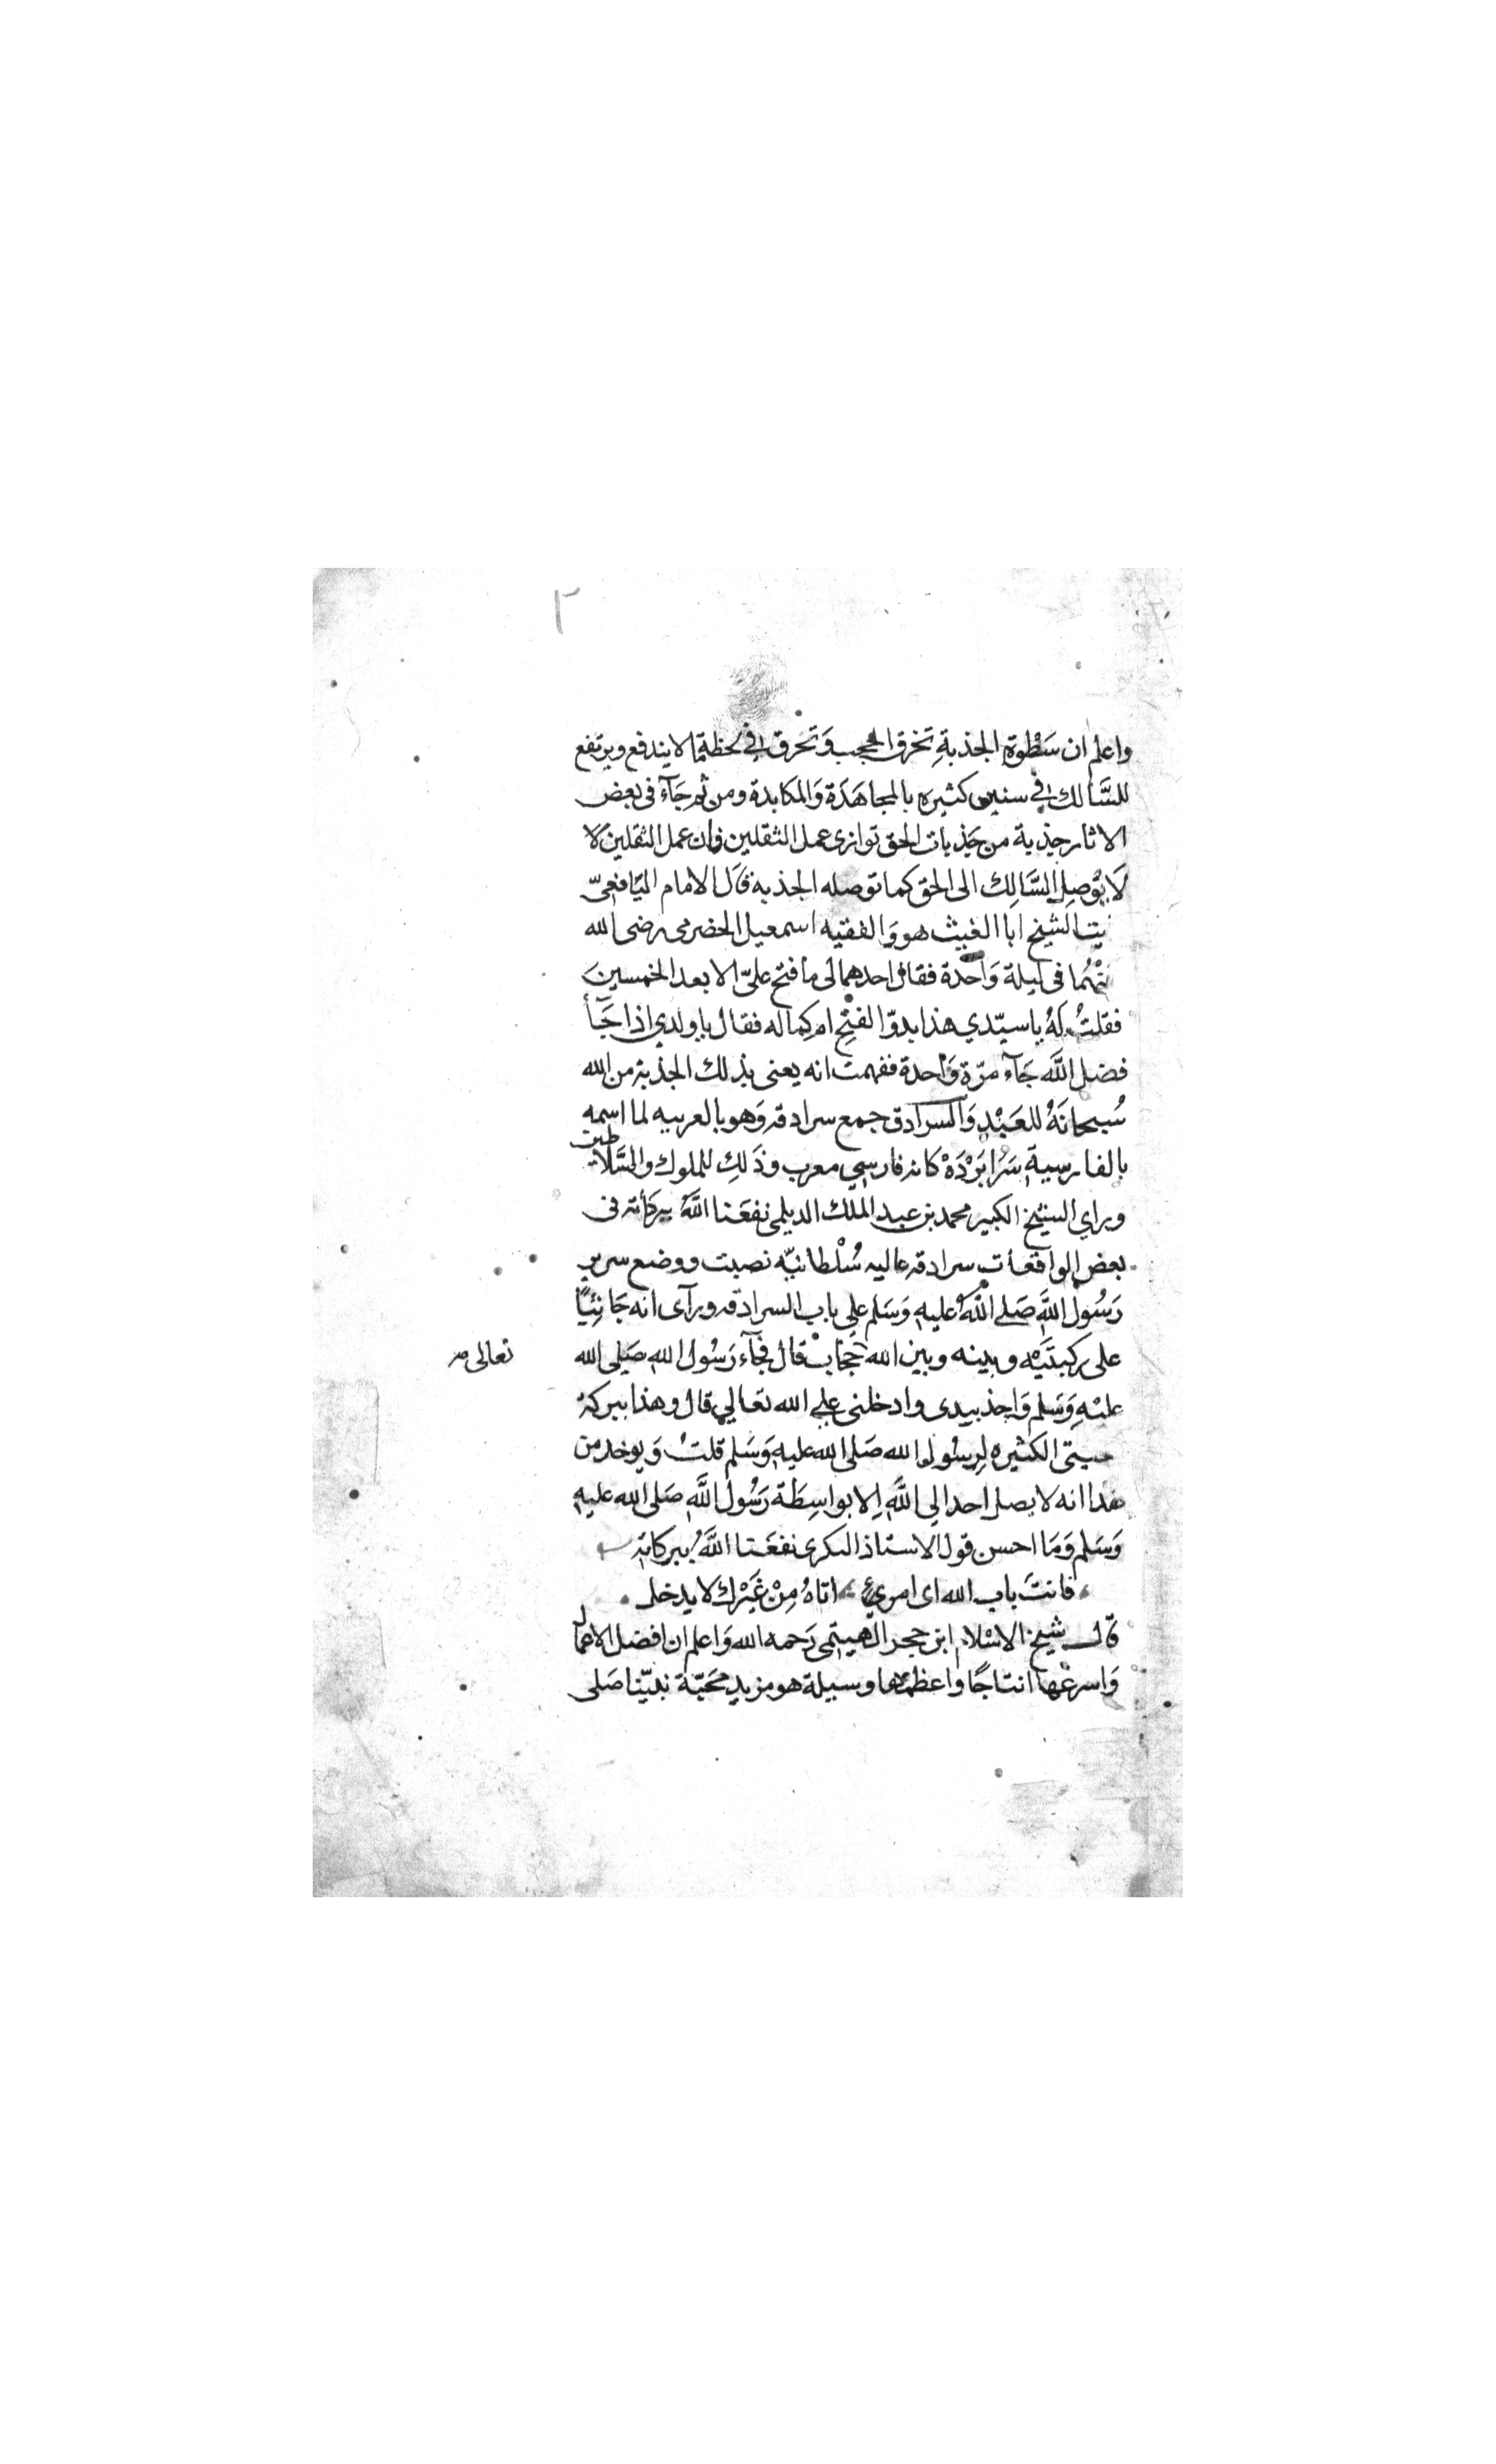 ٢
واعلم ان سَطْوَة الجذبةِ تخرق الحجب وَتحرق في لحظة ما لا يندفع ويرتفع
للسَّالك في سنين كثيره بالمجاهَدَة وَالمكابدة ومن ثم جَآء في بعض
الاثار جذبة من جَذبات الحق توازى عمل الثقلين فان عمل الثقلين لا
لَا يُوْصِل السَّالِك الى الحق كما توصله الجذبة قَال الامام اليَافعيّ
يت الشيخ ابا الغيث هو وَالفقيه اسمعيل الحضرمى رضى الله
نْهُما فى ليلة وَاحدة فقال احدهما لى ما فتح عليّ الا بعد الخمسين
فقلتُ لَهُ يا سيّدي هذا بدوّ الفتحِ ام كماله فقال يا ولدي اذا جَآأ
فضل اللَّه جَآء مرّة وَاحدة ففهمت انه يعنى بذلك الجذبة من الله
سُبحانَهُ للعَبْدِ وَالسرادق جمع سرادقه وَهو بالعربيه لما اسمه
بالفارسية سَرَابَرْدَهْ كانه فارسي معرب وذَلِك للملوك والسَّلاطين
وراي الشيخ الكبير محمد بن عبد الملك الديلمى نفعَنا اللَّهُ ببركَاته فى
بعض الواقعات سرادقه عاليه سُلْطانيّه نصبت ووضع سرير
رَسُول اللَّهِ صَلى اللَّهُ عليهِ وَسَلم علي باب السرادقه ورآى انه جَاثِيًا
على ركبتَيْه وبينه وبين الله حجَابْ قال فجآء رَسُول الله صَلى الله
تعالى صح
عليْهِ وَسَلم وَاخذ بيدى وادخلنى علي الله تعالي قال وهذا ببركة
حبتى الكثيره لِرسُول الله صَلى الله عليهِ وَسَلم قلتُ وَيوخذ من
هذا انه لا يصل احد الي اللَّهِ اِلا بواسِطَة رَسُول اللَّهِ صَلى الله عليهِ
وَسَلم وَمَا احسن قول الاستاذ البكرى نفعَنا اللَّهُ ببركاته
فانتَ باب الله اى امرئ اتاهُ مِنْ غَيْرك لا يدخل
قَال شيخ الاسْلام ابن حجر الهيتمى رَحمه الله وَاعلم ان افضل الاعمال
وَاسرعْها انتاجًا واعظمها وسيلة هو مزيد محَبّة نبيّنا صَلى